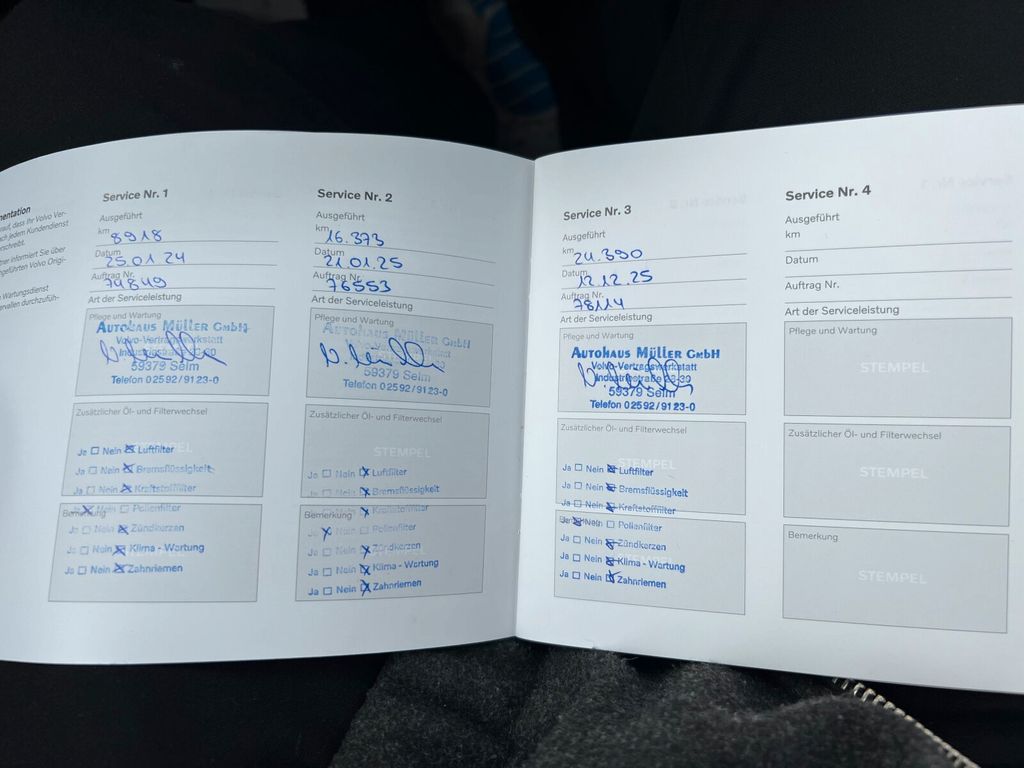 mentation
auf, dass Ihr Volvo Ver-
ach jedem Kundendienst
rschreibt.
ner informiert Sie über
geführten Volvo Origi-
Wartungsdienst
ervallen durchzufüh-
Service Nr. 1
Ausgeführt
km 8918
Datum 25.01.24
Auftrag Nr. 74849
Art der Serviceleistung
Pflege und Wartung
AUTOHAUS MÜLLER GMBH
Volvo-Vertragswerkstatt
Industriestraße
59379 Selm
Telefon 02592/9123-0
Zusätzlicher Öl- und Filterwechsel
STEMPEL
Ja Nein Luftfilter
Ja Nein Bremsflüssigkeit
Ja Nein Kraftstofffilter
Bemerkung
Nein Pollenfilter
Ja Nein Zündkerzen
Ja Nein Klima - Wartung
Ja Nein Zahnriemen
Service Nr. 2
Ausgeführt
km 16.373
Datum 21.01.25
Auftrag Nr. 76553
Art der Serviceleistung
Pflege und Wartung
AUTOHAUS MÜLLER GMBH
59379 Selm
Telefon 02592/9123-0
Zusätzlicher Öl- und Filterwechsel
STEMPEL
Ja Nein Luftfilter
Ja Nein Bremsflüssigkeit
Kraftstofffilter
Bemerkung
Nein Pollenfilter
Ja Nein Zündkerzen
Ja Nein Klima - Wartung
Ja Nein Zahnriemen
Service Nr. 3
Ausgeführt
km 24.390
Datum 12.12.25
Auftrag Nr. 78114
Art der Serviceleistung
Pflege und Wartung
AUTOHAUS MÜLLER GMBH
Volvo-Vertragswerkstatt
Industriestraße
59379 Selm
Telefon 02592/9123-0
Zusätzlicher Öl- und Filterwechsel
STEMPEL
Ja Nein Luftfilter
Ja Nein Bremsflüssigkeit
Ja Nein Kraftstofffilter
Bemerkung
Nein Pollenfilter
Ja Nein Zündkerzen
Ja Nein Klima - Wartung
Ja Nein Zahnriemen
Service Nr. 4
Ausgeführt
km
Datum
Auftrag Nr.
Art der Serviceleistung
Pflege und Wartung
STEMPEL
Zusätzlicher Öl- und Filterwechsel
STEMPEL
Bemerkung
STEMPEL